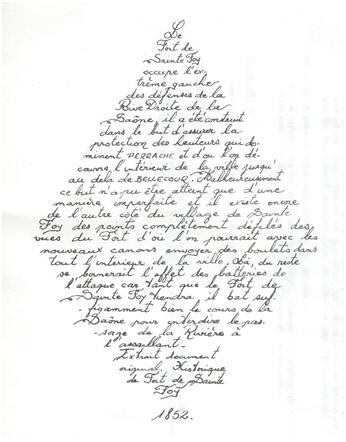 Le
Fort de
Sainte Foy
occupe l'ex-
trème gauche
des défenses de la
Rive Droite de la
Saône, il a été construit
dans le but d'assurer la
protection des hauteurs qui do-
minent PERRACHE et d'où l'on dé-
couvre l'intérieur de la ville jusqu'
au delà de BELLECOUR. Malheureusement
ce but n'a pu être atteint que d'une
manière imparfaite et il existe encore
de l'autre côté du village de Sainte
Foy des points complètement défilés des
vues du Fort d'où l'on pourrait avec les
nouveaux canons envoyer des boulets dans
tout l'intérieur de la ville. Là, du reste
se bornerait l'effet des batteries de
l'attaque car tant que le Fort de
Sainte Foy tiendra il bat suf-
-fisamment bien le cours de la
Saône pour interdire le pas-
-sage de la Rivière à
l'assaillant-
Extrait document
original. Historique
de Fort de Sainte
Foy
1852.